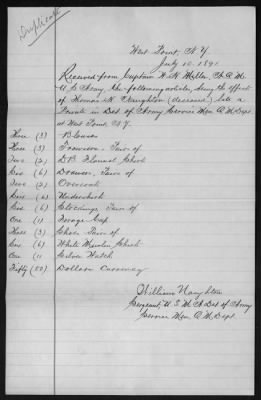 Duplicate
West Point, N.Y.
July 10. 1891.
Received from Captain W. H. Miller, A.Q.M.
U.S. Army, the following articles, being the effects
of Thomas H. Naughton (deceased) late a
Private in Det. of Army Service Men Q.M. Dept
at West Point, N.Y.
Three (3) Blouses
Three (3) Trousers, Pair of
Two (2) D.B. Flannel Shirts
Six (6) Drawers, Pair of
Two (2) Overcoats
Six (6) Undershirts
Six (6) Stockings Pair of
One (1) Forage Cap
Three (3) Shoes Pair of
Six (6) White Muslin Shirts
One (1) Silver Watch
Fifty (50) Dollars Currency
William Naughton
Sergeant, U.S.M.A. Det of Army
Service Men Q.M. Dept.